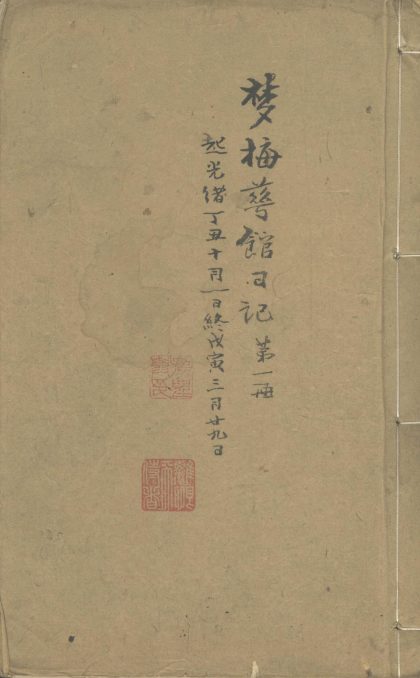 梦梅萼館日记 第一册
起光緒丁丑十月一日終戊寅三月廿九日